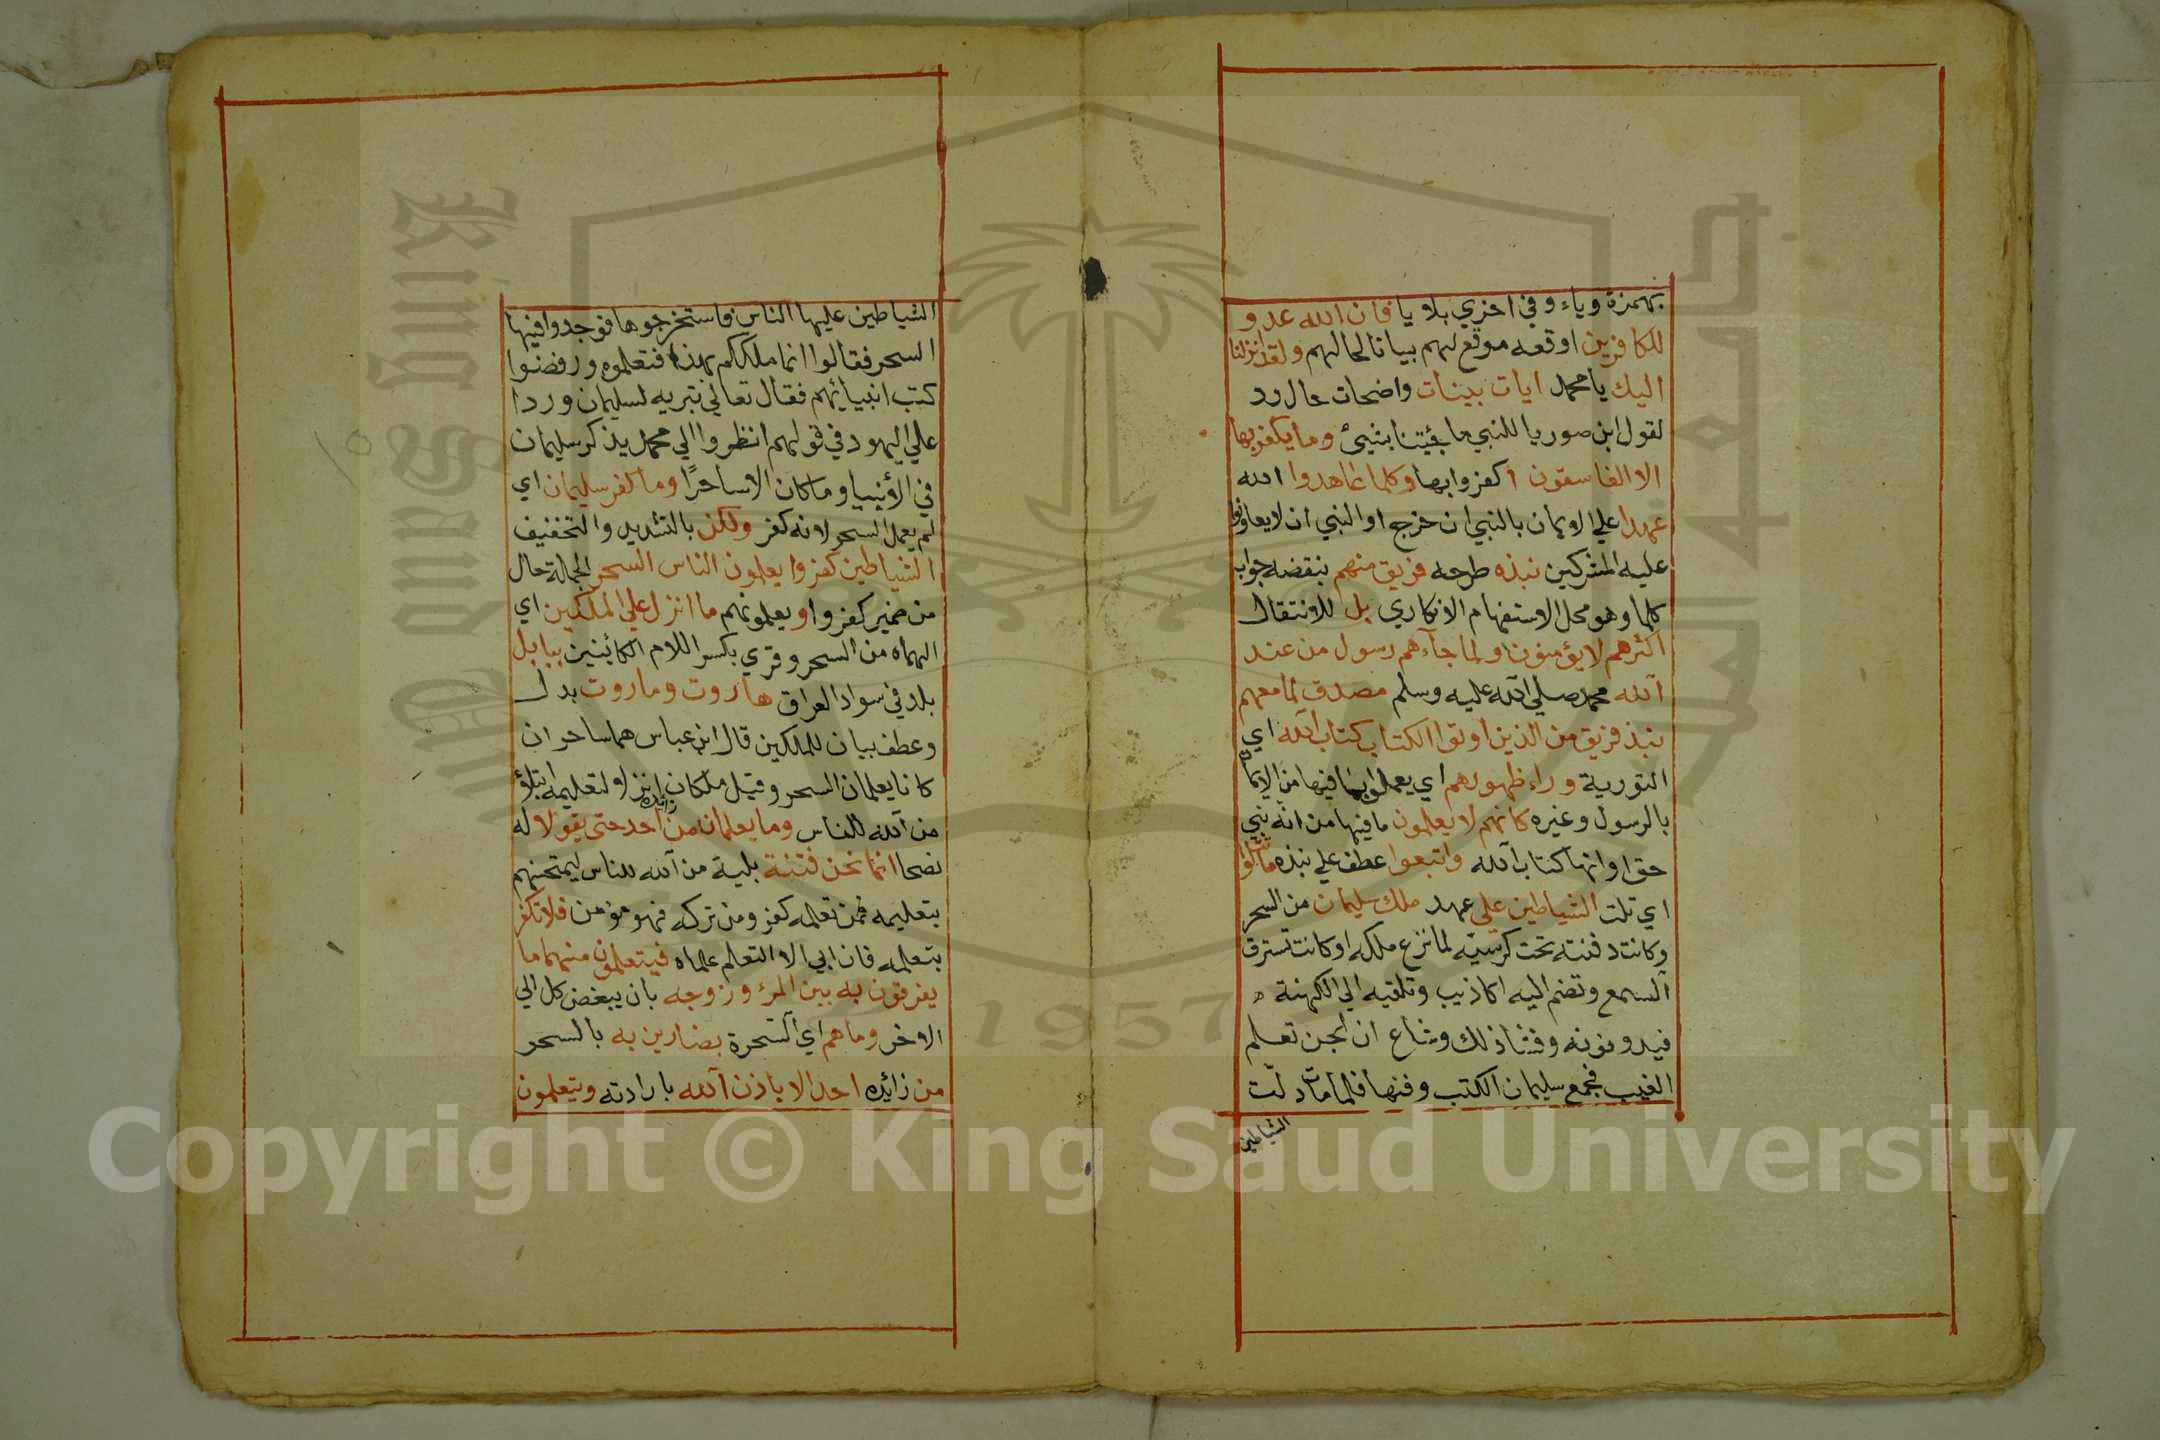 بهمزة وياء وفي اخري بلا يا فان الله عدو
للكافرين اوقعه موقع لهم بيانا لحالهم ولقد انزلنا
اليك يا محمد ايات بينات واضحات حال رد
لقول ابن صوريا للنبي ما جئتنا بشيئ وما يكفر بها
الا الفاسقون اكفروا بها وكلما عاهدوا الله
عهدا علي الايمان بالنبي ان خرج او النبي ان لا يعاونوا
عليه المشركين نبذه طرحه فريق منهم بنقضه جواب
كلما وهو محل الاستفهام الانكاري بل للانتقال
اكثرهم لا يؤمنون ولما جآءهم رسول من عند
آلله محمد صلي آلله عليه وسلم مصدق لما معهم
نبذ فريق من الذين اوتوا الكتاب كتاب آلله اي
التورية وراء ظهورهم اي يعملوا بما فيها من الايمان
بالرسول وغيره كانهم لا يعلمون ما فيها من انه نبي
حق او انها كتاب آلله واتبعوا عطف علي نبذ ما تتلوا
اي تلت الشياطين علي عهد ملك سليمان من السحر
وكانت دفنته تحت كرسيه لما نزع ملكه او كانت تسترق
آلسمع وتضم اليه اكاذيب وتلقيه الي الكهنة
فيدونونه وفشا ذلك وشاع ان الجن تعلم
الغيب فجمع سليمان الكتب وفنها فلما مات دلت
الشياطين
الشياطين عليها الناس فاستخرجوها فوجدوا فيها
السحر فقالوا انما ملككم بهذا فتعلموه ورفضوا
كتب انبيائهم فقال تعالي تبريه لسليمان وردا
علي اليهود في قولهم انظروا الي محمد يذكر سليمان
في الأنبيا وما كان الا ساحرًا وما كفر سليمان اي
لم يعمل السحر لانه كفر ولكن بالتشديد والتخفيف
الشياطين كفروا يعلمون الناس السحر الجملة حال
من ضمير كفروا ويعلمونهم ما انزل علي الملكين اي
الهماه من السحر وقري بكسر اللام الكائنين ببابل
بلد في سواد العراق هاروت وماروت بدل
وعطف بيان للملكين قال ابن عباس هما ساحران
كانا يعلمان السحر وقيل ملكان انزلا لتعليمه ابتلؤ
من آلله للناس وما يعلمان من زائده احد حتي يقولا له
نصحا انما نحن فتنة بلية من آلله للناس ليمتحنهم
بتعليمه فمن تعلمه كفر ومن تركه فهو مؤمن فلا تكفر
بتعلمه فان ابي الا التعلم علماه فيتعلمون منهما ما
يفرقون به بين المرء وزوجه بان يبغض كل الي
الاخر وما هم اي آلسحرة بضارين به بالسحر
من زائده احد الا باذن آلله بارادته ويتعلمون
King Saud University
1957
Copyright © King Saud University